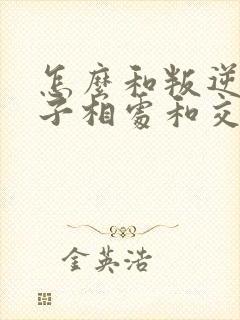 怎麼和叛逆
子相處和交
金英浩